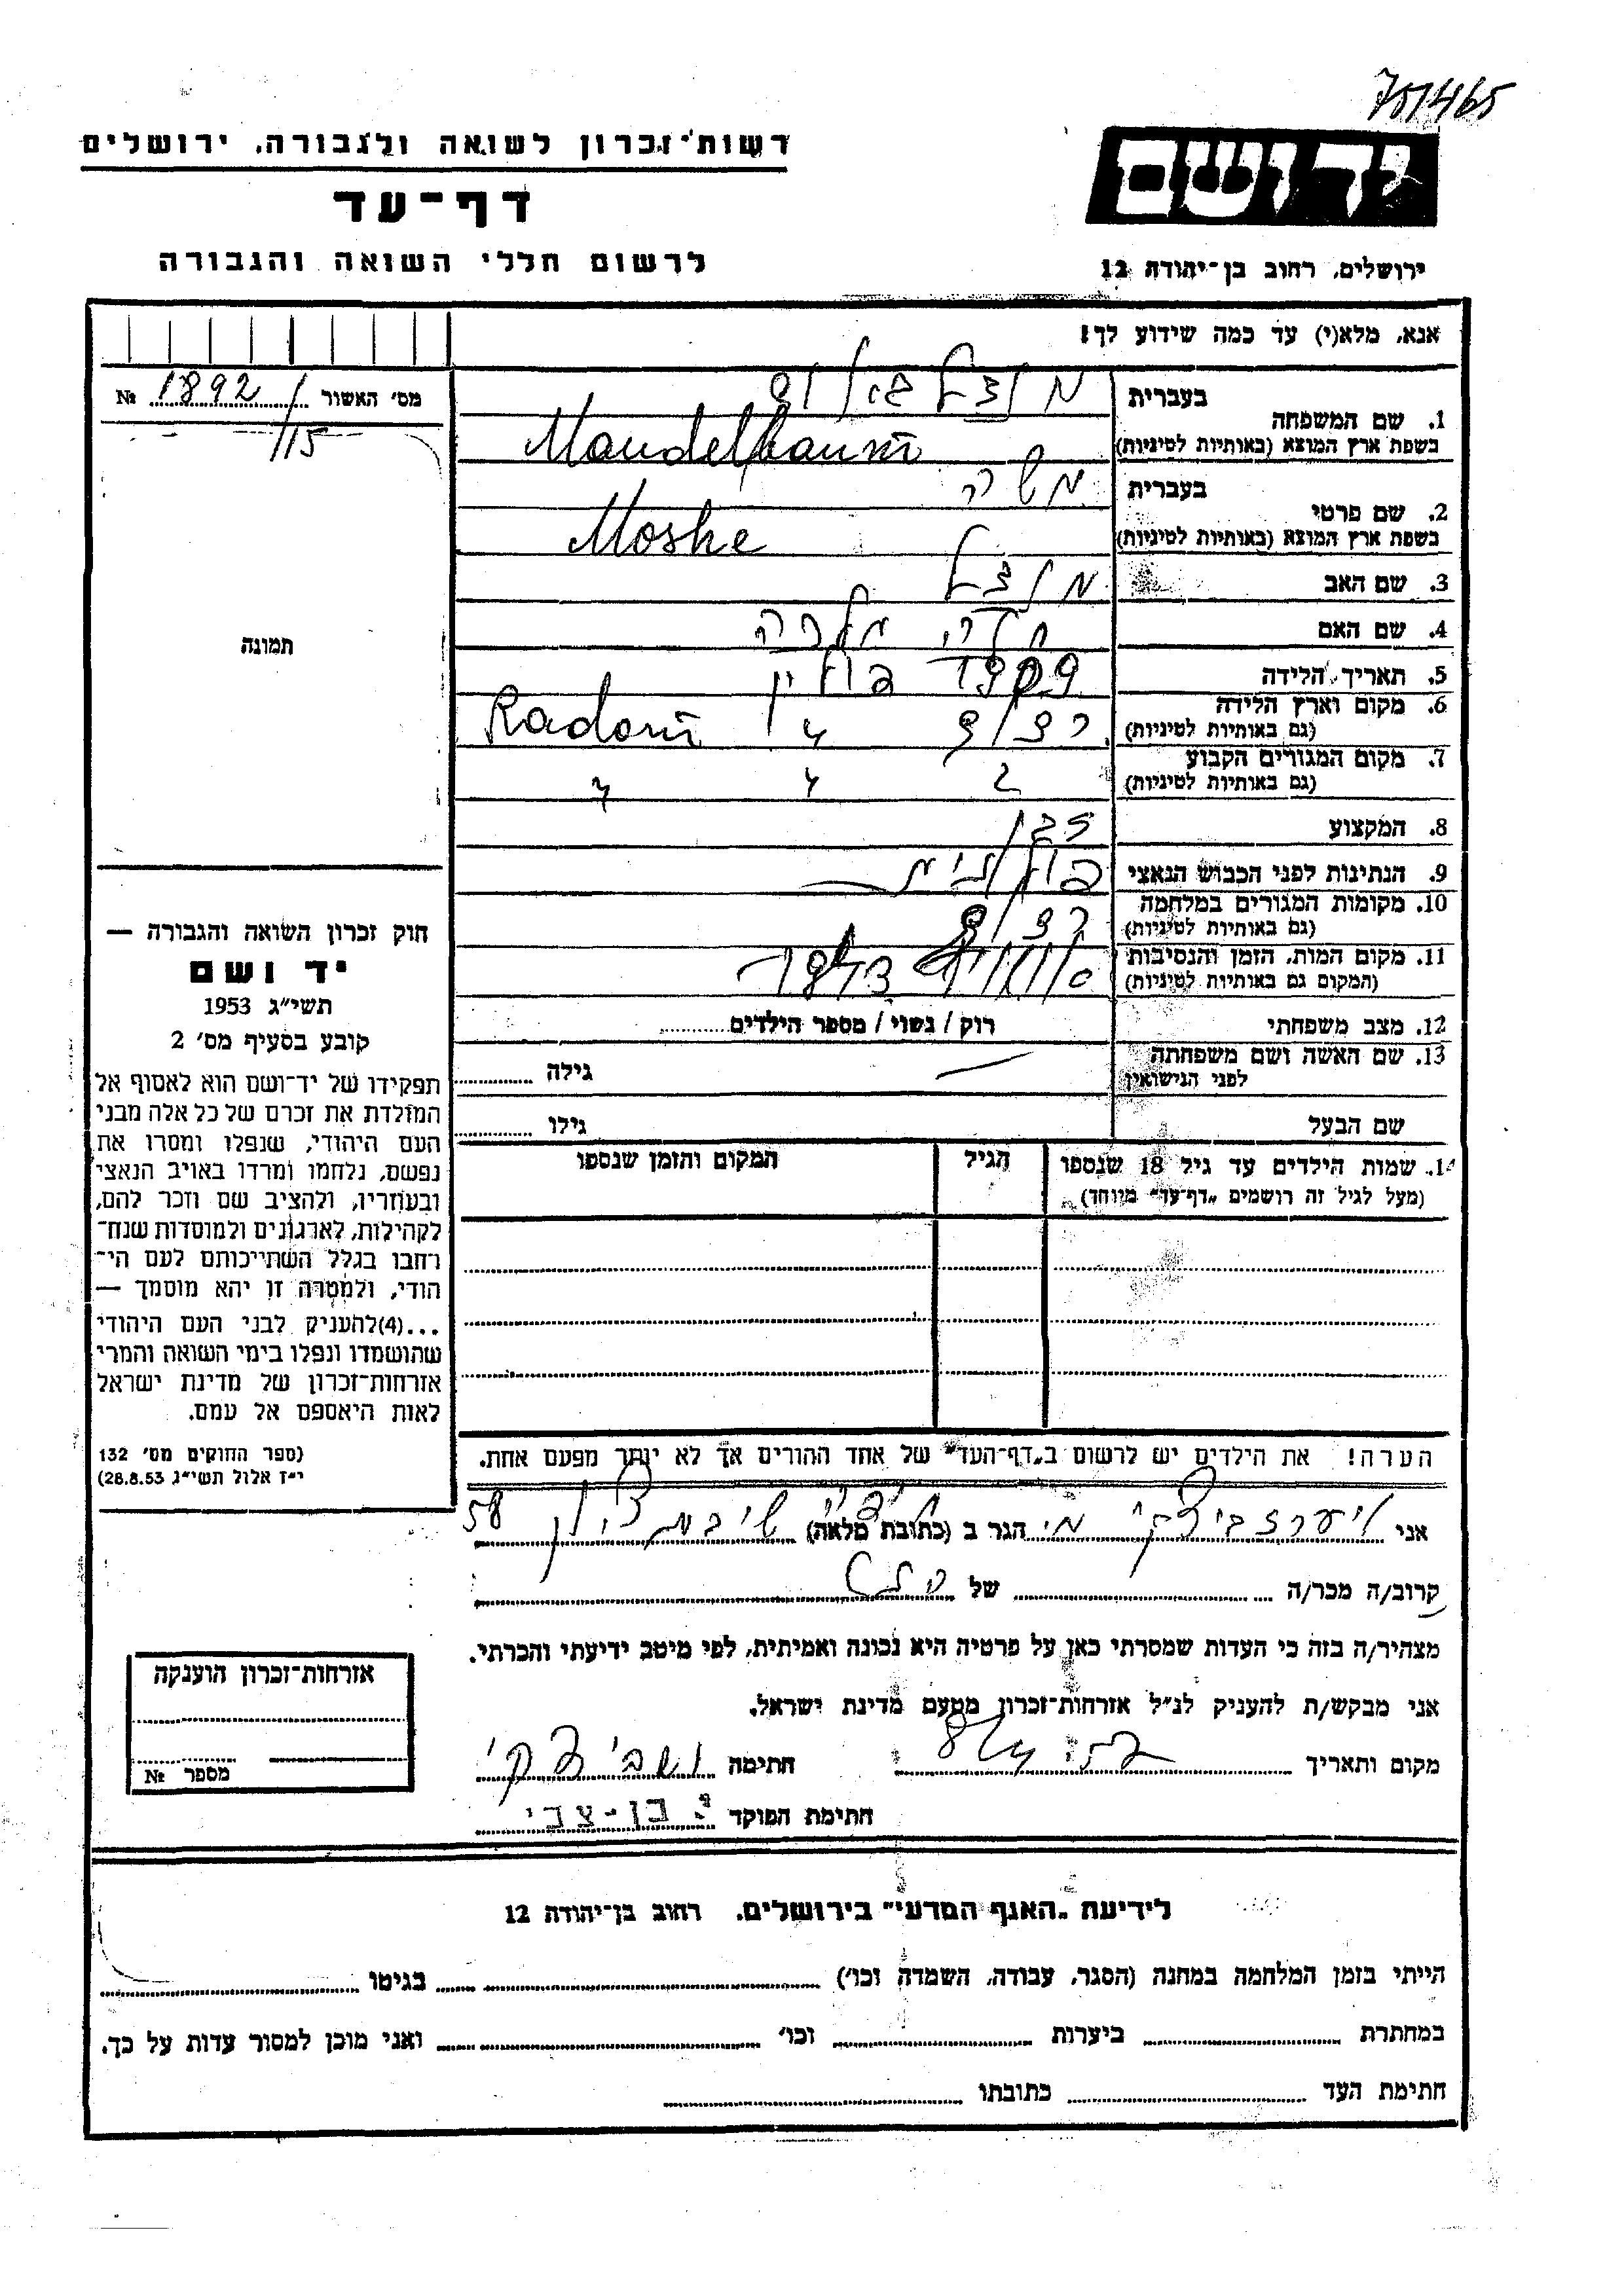 751465
רשות־זכרון לשואה ולגבורה, ירושלים
יד ושם
דף־עד
לרשום חללי השואה והגבורה
ירושלים, רחוב בן־יהודה 12
אנא, מלא(י) עד כמה שידוע לך!
מס׳ האשור 1892/ №
115
1. שם המשפחה
בעברית
בשפת ארץ המוצא (באותיות לטיניות) Mandelbaum
2. שם פרטי
בעברית משה
בשפת ארץ המוצא (באותיות לטיניות) Moshe
3. שם האב מנדל
4. שם האם חיה מלכה
5. תאריך הלידה 1909 פולין
6. מקום וארץ הלידה
(גם באותיות לטיניות) רדום " Radom
7. מקום המגורים הקבוע
(גם באותיות לטיניות) " " "
8. המקצוע
9. הנתינות לפני הכבוש הנאצי פולנית
10. מקומות המגורים במלחמה
(גם באותיות לטיניות) רדום
11. מקום המות, הזמן והנסיבות
(המקום גם באותיות לטיניות)
12. מצב משפחתי רוק / נשוי / מספר הילדים
13. שם האשה ושם משפחתה
לפני הנישואין גילה
שם הבעל גילו
14. שמות הילדים עד גיל 18 שנספו הגיל המקום והזמן שנספו
(מעל לגיל זה רושמים „דף־עד״ מיוחד)
תמונה
חוק זכרון השואה והגבורה —
יד ושם
תשי״ג 1953
קובע בסעיף מס׳ 2
תפקידו של יד־ושם הוא לאסוף אל
המולדת את זכרם של כל אלה מבני
העם היהודי, שנפלו ומסרו את
נפשם, נלחמו ומרדו באויב הנאצי
ובעוזריו, ולהציב שם וזכר להם,
לקהילות, לארגונים ולמוסדות שנח־
רחבו בגלל השתייכותם לעם הי־
הודי, ולמטרה זו יהא מוסמך —
...(4)להעניק לבני העם היהודי
שהושמדו ונפלו בימי השואה והמרי
אזרחות־זכרון של מדינת ישראל
לאות היאספם אל עמם.
(ספר החוקים מס׳ 132
י״ז אלול תשי״ג 28.8.53)
הערה! את הילדים יש לרשום ב„דף־העד״ של אחד ההורים אך לא יותר מפעם אחת.
אני הגר ב (כתובת מלאה) שיבת ציון 58
קרוב/ה מכר/ה של
מצהיר/ה בזה כי העדות שמסרתי כאן על פרטיה היא נכונה ואמיתית, לפי מיטב ידיעתי והכרתי.
אני מבקש/ת להעניק לנ״ל אזרחות־זכרון מטעם מדינת ישראל.
מקום ותאריך חתימה
חתימת הפוקד י. בן-צבי
אזרחות־זכרון הוענקה
מספר №
לידיעת „האגף המדעי״ בירושלים, רחוב בן־יהודה 12
הייתי בזמן המלחמה במחנה (הסגר, עבודה, השמדה וכו׳) בגיטו
במחתרת ביערות וכו׳ ואני מוכן למסור עדות על כך.
חתימת העד כתובתו